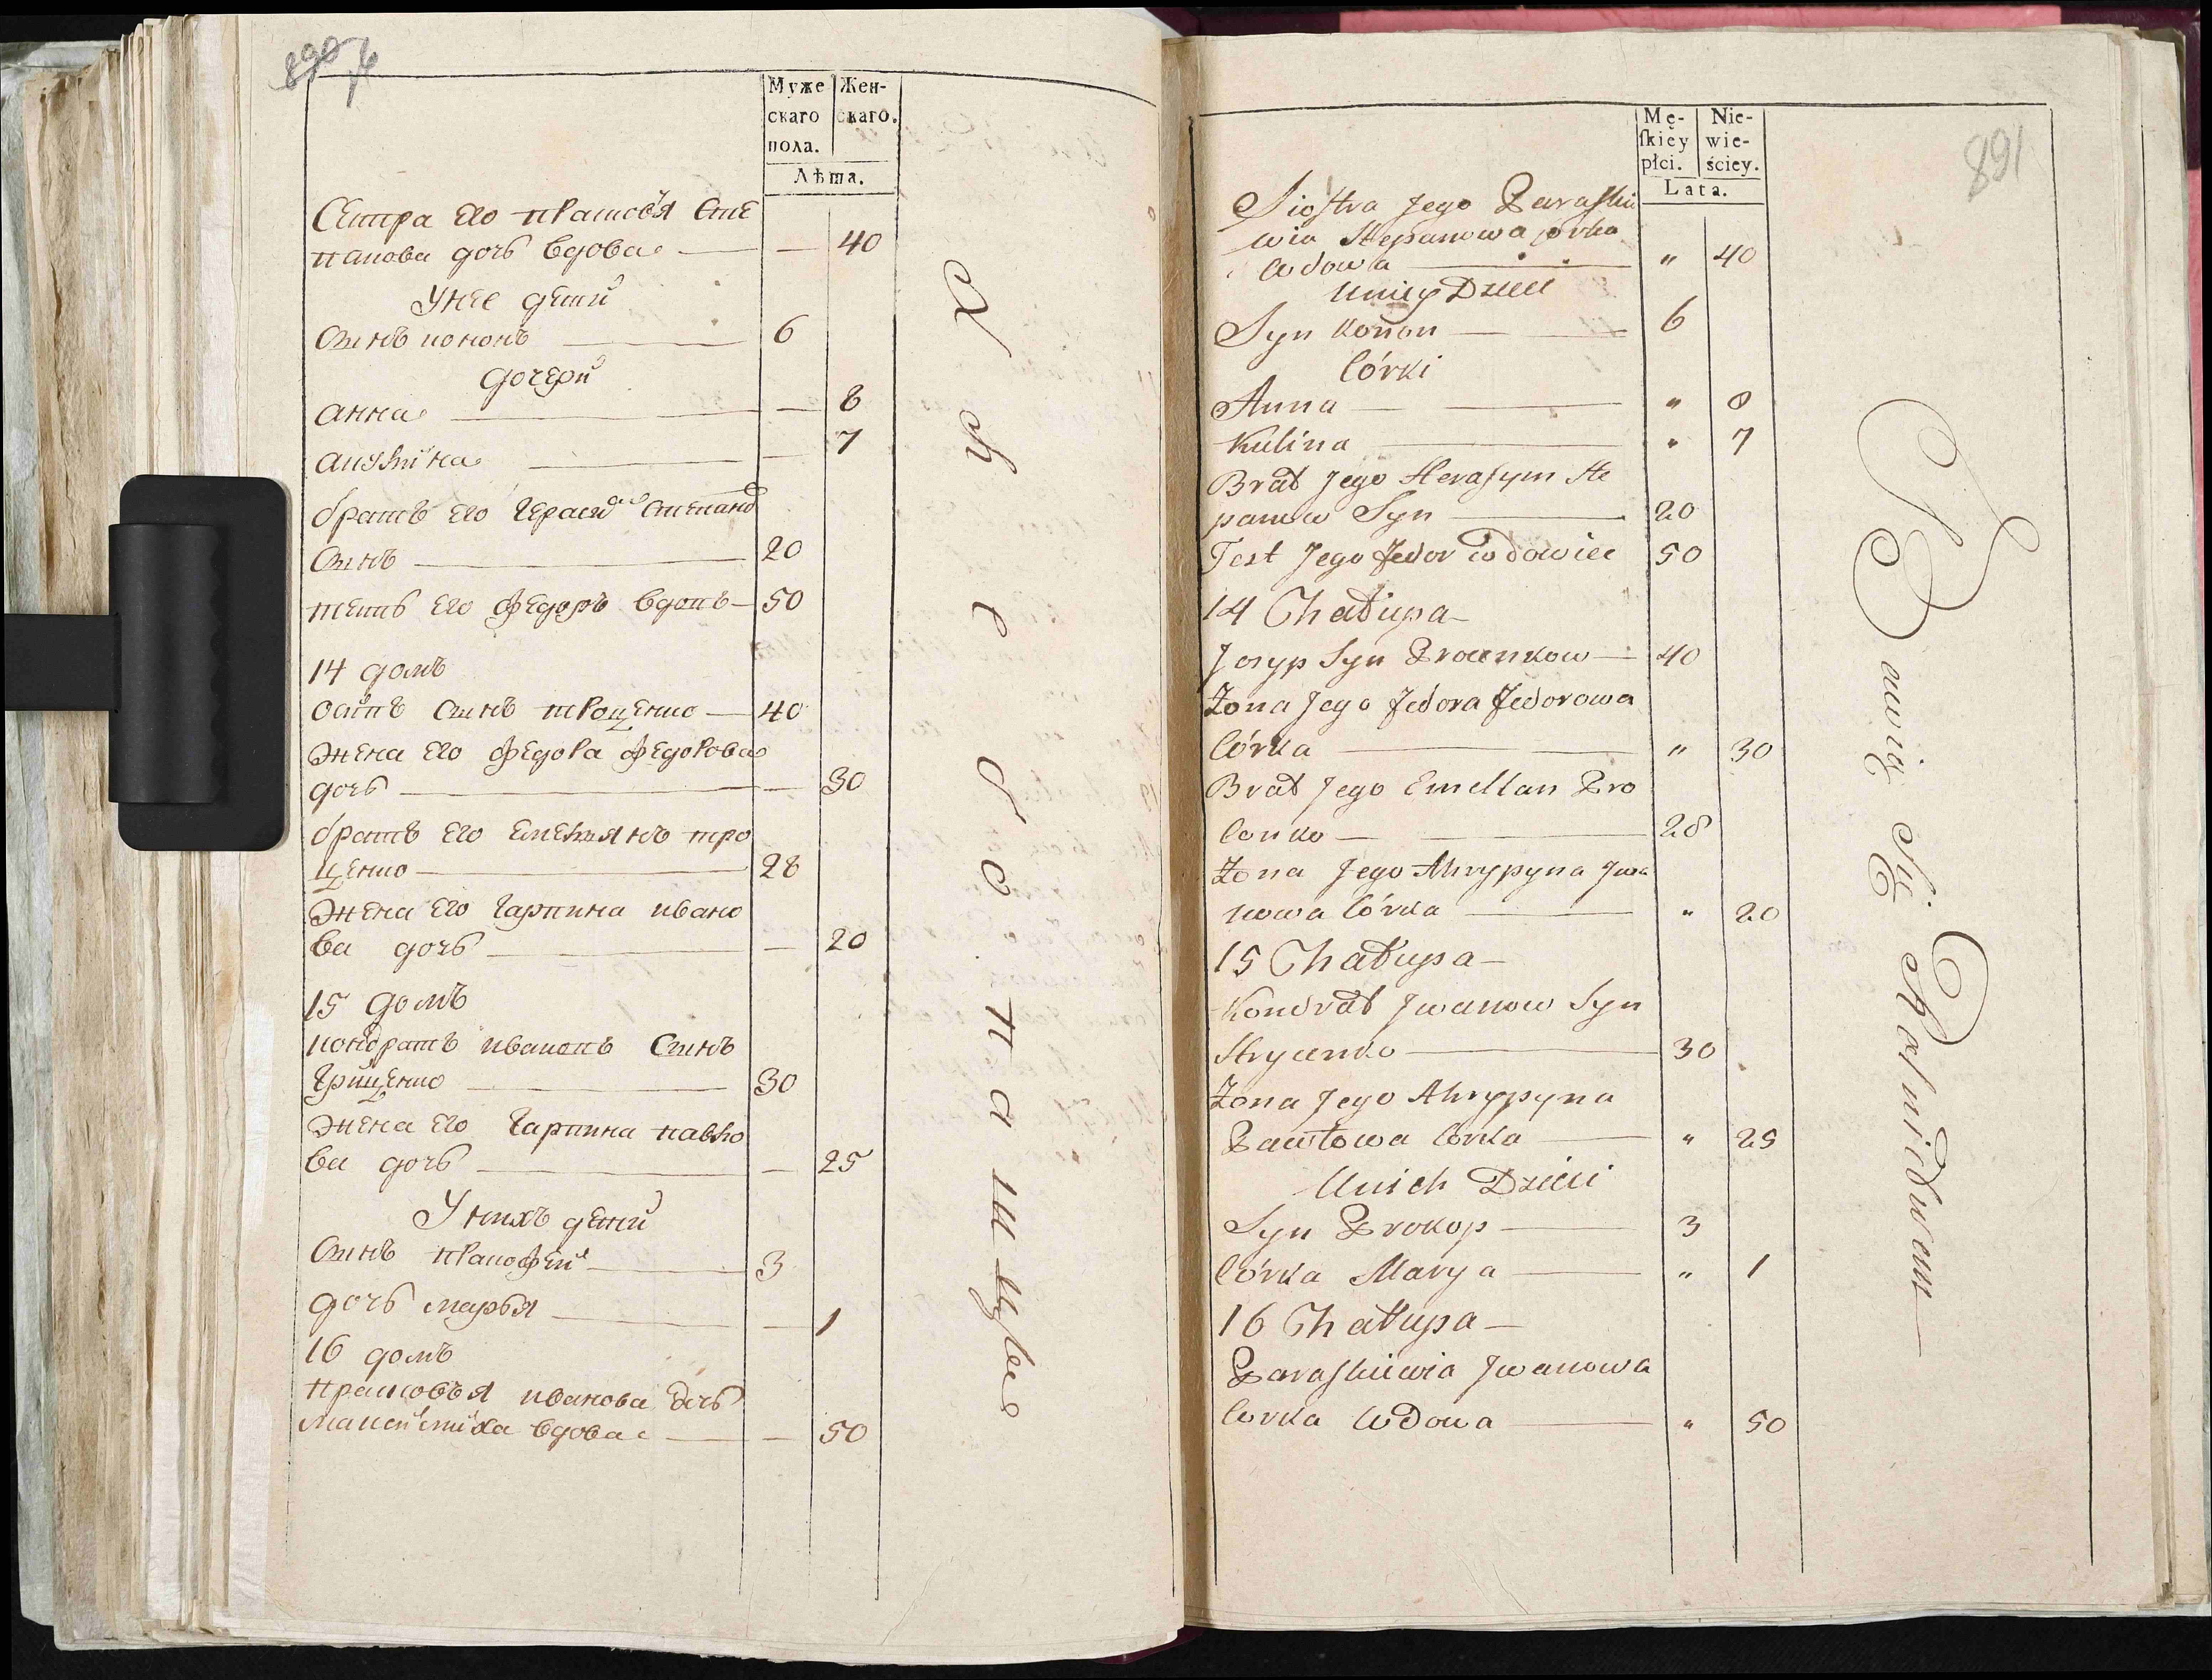 890
Муже Жен-
скаго скаго.
пола.
Лѣта.
Сестра его прасковя сте
панова дочь вдова — — 40
Унее дети
Сынъ кононъ — 6
дочери
анна — — 8
акулина — — 7
братъ его герасим степановъ
Сынъ — 20
тесть его федоръ вдовъ — 50
14 домъ
осипъ сынъ троценко — 40
жена его федора федорова
дочь — — 30
братъ его емельянъ тро
ценко — 28
жена его гарпина ивано
ва дочь — — 20
15 домъ
кондратъ ивановъ Сынъ
грищенко — 30
жена его гарпина павло
ва дочь — — 25
У нихъ дети
Сынъ пракофей — 3
дочь марья — — 1
16 домъ
прасковъя иванова дочь
вдова — — 50
891
Mę- Nie-
ſkiéy wie-
płci. ściey.
Lata.
Siostra Jego Paraski
wia Stepanowa córka
wdowa — " 40
Uniey Dzieci
Syn Konon — 6
Córki
Anna — " 8
Kulina — " 7
Brat Jego Herasym Ste
panow Syn — 20
Test Jego Fedor wdowiec 50
14 Chałupa —
Josyp Syn Procenkow — 40
Żona Jego Fedora Fedorowa
Córka — " 30
Brat Jego Emellan Pro
cenko — 28
Żona Jego Ahrypyna Jwa
nowa Córka — " 20
15 Chałupa —
Kondrat Jwanow Syn
Hrycenko — 30
Żona Jego Ahrypyna
Pawłowa Corka — " 25
Unich Dzieci
Syn Prokop — 3
Córka Marya — " 1
16 Chałupa —
Paraskiewia Jwanowa
Corka Wdowa — " 50